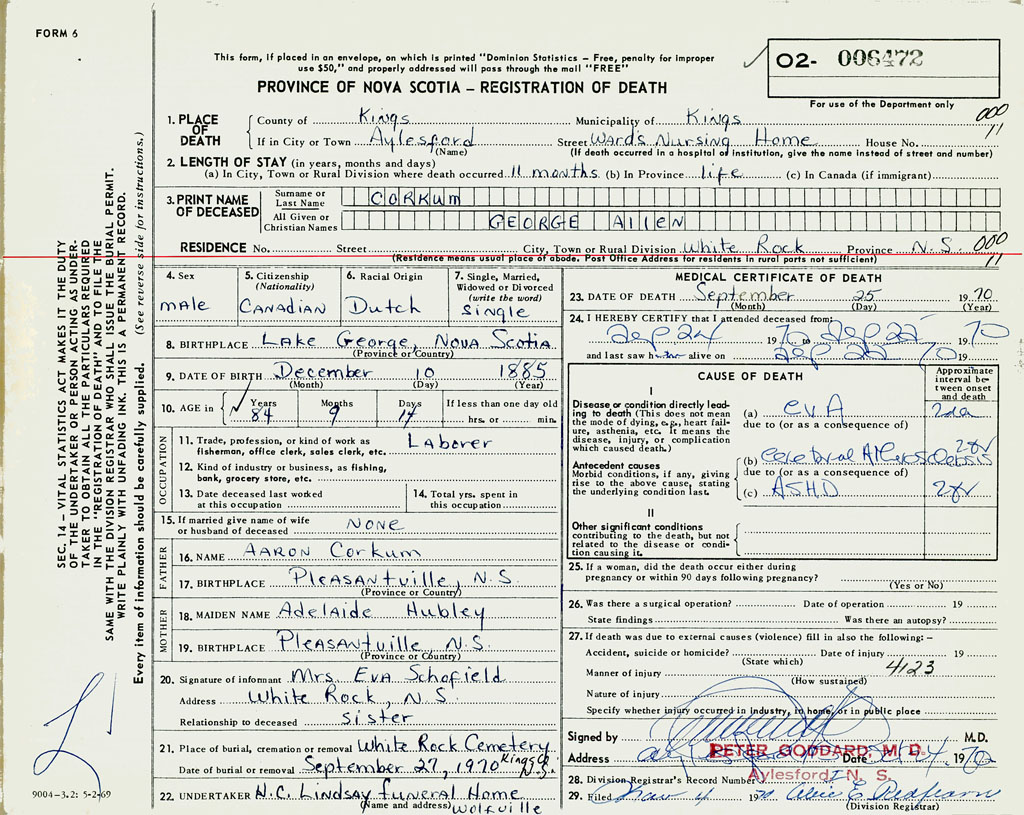 FORM 6
This form, if placed in an envelope, on which is printed "Dominion Statistics – Free, penalty for improper
use $50," and properly addressed will pass through the mail "FREE"
02- 006472
PROVINCE OF NOVA SCOTIA – REGISTRATION OF DEATH
For use of the Department only
1. PLACE OF DEATH
County of Kings Municipality of Kings 000
11
If in City or Town Aylesford Street Ward's Nursing Home House No.
(Name) (If death occurred in a hospital or institution, give the name instead of street and number)
2. LENGTH OF STAY (in years, months and days)
(a) In City, Town or Rural Division where death occurred 11 months (b) In Province life (c) In Canada (if immigrant)
3. PRINT NAME OF DECEASED
Surname or Last Name CORKUM
All Given or Christian Names GEORGE ALLEN
RESIDENCE No. Street City, Town or Rural Division White Rock Province N.S. 000
(Residence means usual place of abode. Post Office Address for residents in rural parts not sufficient) 11
4. Sex
male
5. Citizenship
(Nationality)
Canadian
6. Racial Origin
Dutch
7. Single, Married,
Widowed or Divorced
(write the word)
single
8. BIRTHPLACE Lake George, Nova Scotia
(Province or Country)
9. DATE OF BIRTH December 10 1885
(Month) (Day) (Year)
10. AGE in Years Months Days If less than one day old
84 9 14 hrs. or min.
OCCUPATION
11. Trade, profession, or kind of work as Laborer
fisherman, office clerk, sales clerk, etc.
12. Kind of industry or business, as fishing,
bank, grocery store, etc.
13. Date deceased last worked
at this occupation
14. Total yrs. spent in
this occupation
15. If married give name of wife
or husband of deceased None
FATHER
16. NAME Aaron Corkum
17. BIRTHPLACE Pleasantville, N.S.
(Province or Country)
MOTHER
18. MAIDEN NAME Adelaide Hubley
19. BIRTHPLACE Pleasantville N.S.
(Province or Country)
20. Signature of informant Mrs. Eva Schofield
Address White Rock, N.S.
Relationship to deceased sister
21. Place of burial, cremation or removal White Rock Cemetery
Kings Co. N.S.
Date of burial or removal September 27, 1970
22. UNDERTAKER H.C. Lindsay Funeral Home
(Name and address) Wolfville
MEDICAL CERTIFICATE OF DEATH
23. DATE OF DEATH September 25 1970
(Month) (Day) (Year)
24. I HEREBY CERTIFY that I attended deceased from:
Sep 24 1970 to Sep 22 1970
and last saw him alive on Sep 22 70 19
CAUSE OF DEATH
Approximate
interval be-
tween onset
and death
I
Disease or condition directly lead-
ing to death (This does not mean
the mode of dying, e.g., heart fail-
ure, asthenia, etc. It means the
disease, injury, or complication
which caused death.)
(a) CVA
due to (or as a consequence of)
Antecedent causes
Morbid conditions, if any, giving
rise to the above cause, stating
the underlying condition last.
(b) Cerebral Atherosclerosis
due to (or as a consequence of)
(c) ASHD
II
Other significant conditions
contributing to the death, but not
related to the disease or condi-
tion causing it.
25. If a woman, did the death occur either during
pregnancy or within 90 days following pregnancy?
(Yes or No)
26. Was there a surgical operation? Date of operation 19
State findings Was there an autopsy?
27. If death was due to external causes (violence) fill in also the following: –
Accident, suicide or homicide? Date of injury 19
(State which)
Manner of injury 4123
(How sustained)
Nature of injury
Specify whether injury occurred in industry, in home, or in public place
Signed by M.D.
Address PETER GODDARD, M. D. Date 1970
28. Division Registrar's Record Number Aylesford N. S.
29. Filed Nov 4 1970 E. Redfearn
(Division Registrar)
SEC. 14 – VITAL STATISTICS ACT MAKES IT THE DUTY
OF THE UNDERTAKER OR PERSON ACTING AS UNDER-
TAKER TO OBTAIN ALL THE PARTICULARS REQUIRED
IN THE "REGISTRATION OF DEATH" AND TO FILE THE
SAME WITH THE DIVISION REGISTRAR WHO SHALL ISSUE THE BURIAL PERMIT.
WRITE PLAINLY WITH UNFADING INK. THIS IS A PERMANENT RECORD.
Every item of information should be carefully supplied. (See reverse side for instructions.)
9004-3.2: 5-2-69